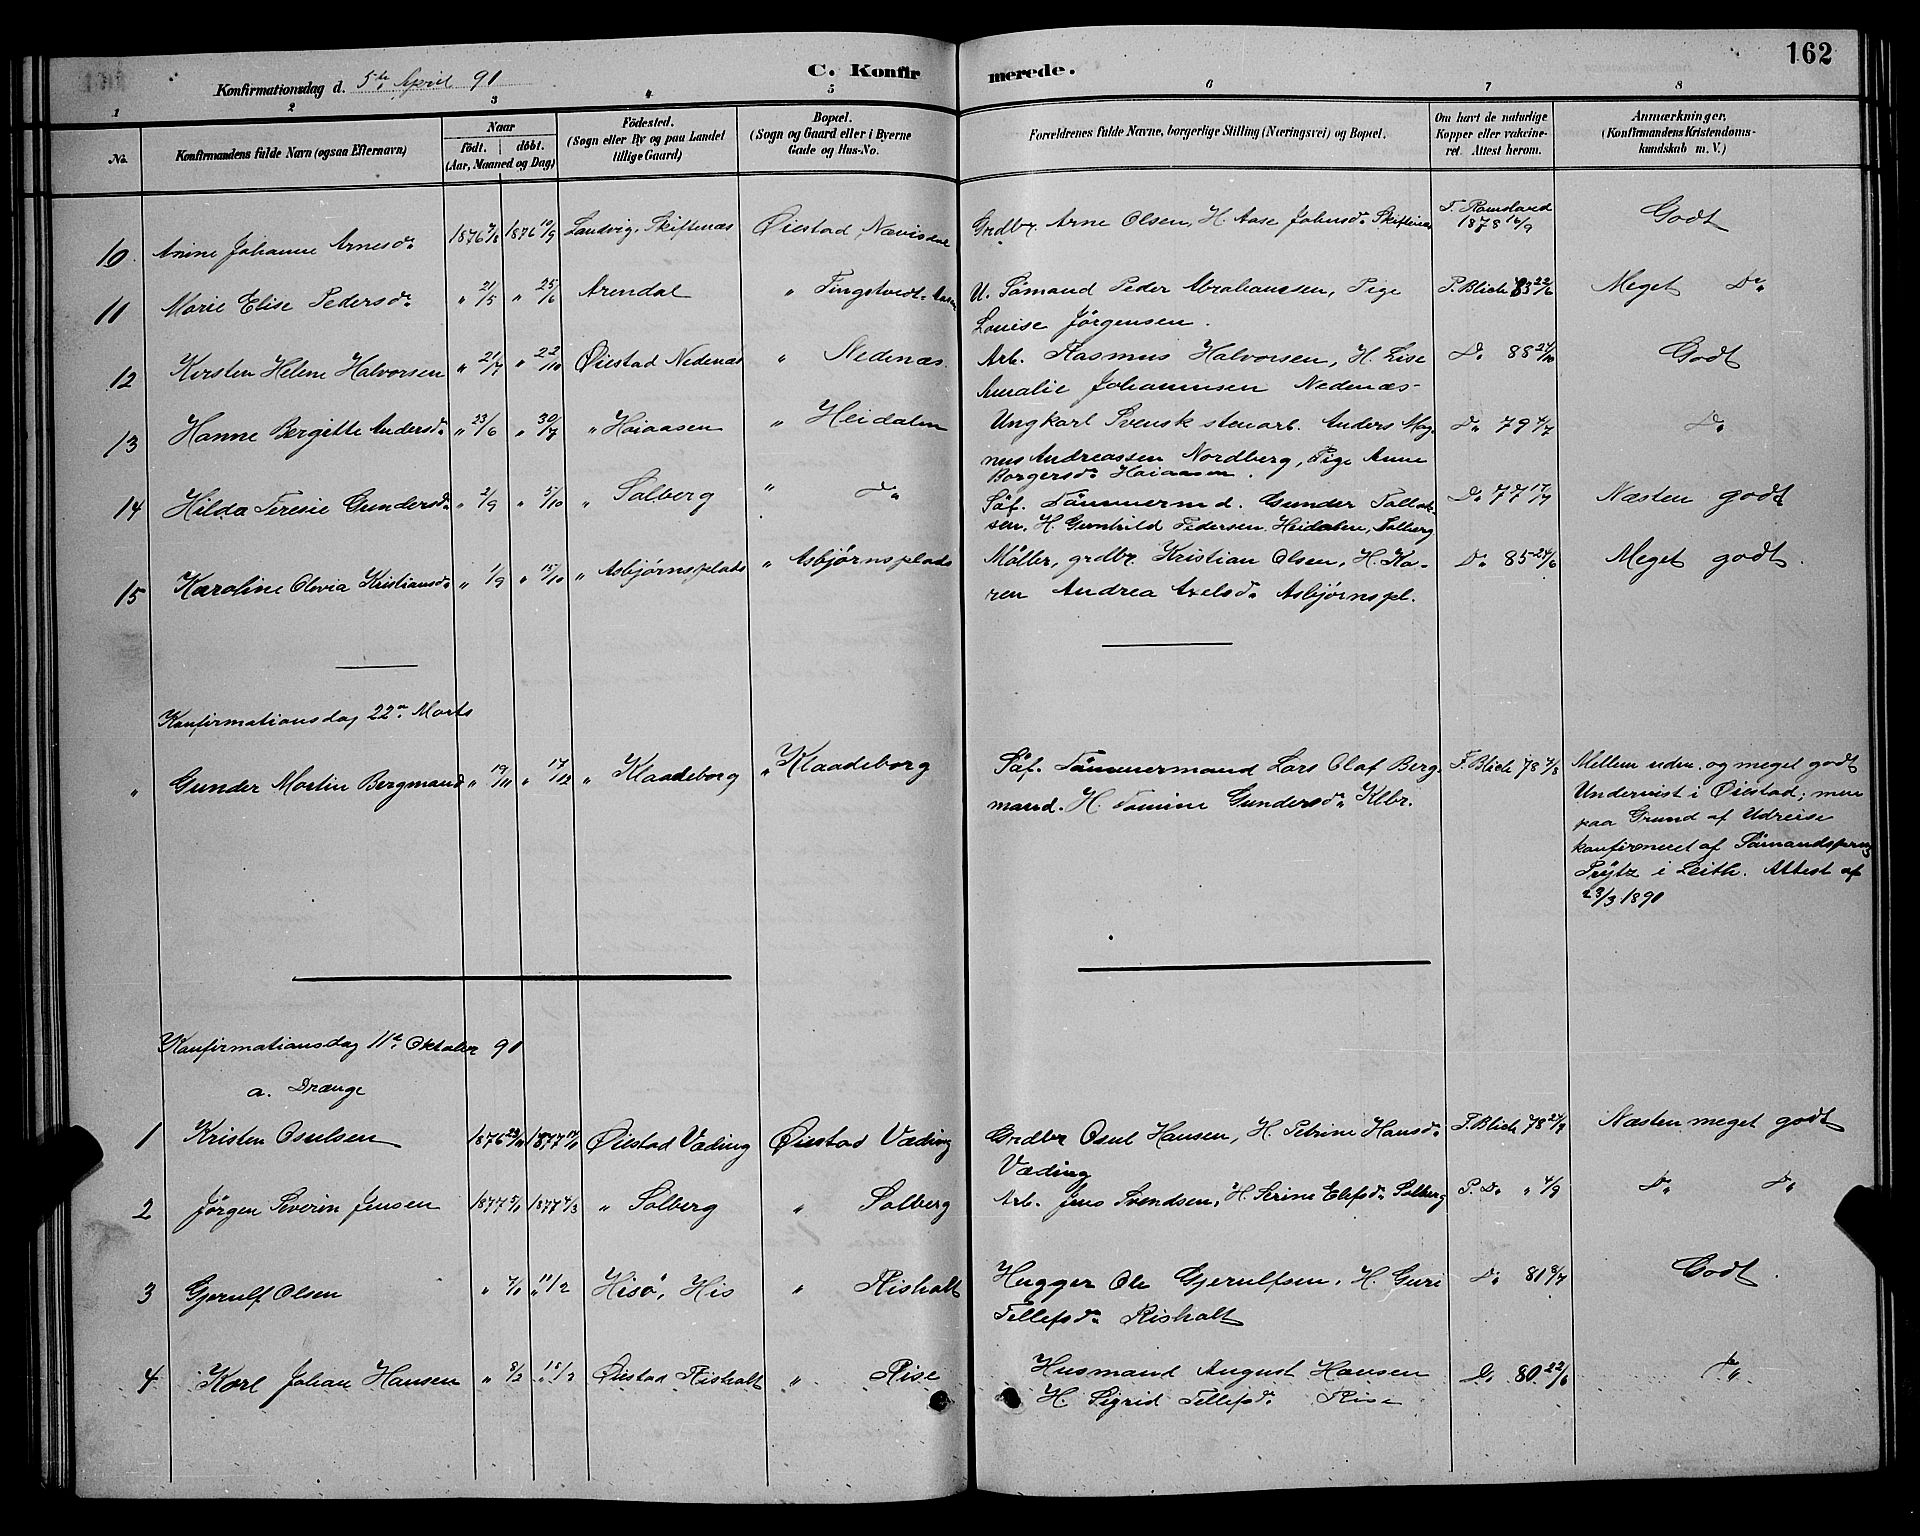 162
Konfirmationsdag d. 5te April 91
C. Konfirmerede.
1 2 3 4 5 6 7 8
No.
Konfirmandens fulde Navn (ogsaa Efternavn)
Naar
födt. döbt.
(Aar, Maaned og Dag)
Födested.
(Sogn eller By og paa Landet
tillige Gaard)
Bopæl.
(Sogn og Gaard eller i Byerne
Gade og Hus-No.
Forældrenes fulde Navne, borgerlige Stilling (Næringsvei) og Bopæl.
Om havt de naturlige
Kopper eller vakcine-
ret. Attest herom.
Anmærkninger.
(Konfirmandens Kristendoms-
kundskab m. V.)
10 Anine Johanne Arnesd. 1876 1876 10/9 Landvig, Skiftenæs Øiestad Nævisdal Grdbr. Arne Olsen, H. Aase Johnsd. Skiftenæs T. Ramsland 1878 16/9 Godt
11 Marie Elise Pedersd. " 21/5 " 25/6 Arendal " Tingstvedt U. Sømand Peder Abrahamsen, Pige
Louise Jørgensen. P. Blich 83 22/6 Meget Do
12 Kirsten Helene Halvorsen " 21/7 " 22/10 Øiestad Nedenæs " Nedenæs. Arb. Rasmus Halvorsen, H. Lise
Amalie Johannesen Nedenæs- Do 88 Godt
13 Hanne Bergitte Andersd. " 23/6 " 30/7 " Haiaasen " Heidalen Ungkarl Svensk stenarb. Anders Mag-
nus Andreassen Nordberg, Pige Anne
Borgersd. Haiaasen. Do 79 4/7 Do
14 Hilda Teresie Gundersd. " 2/9 " 5/10 " Salberg " Do Søf. Tømmermd. Gunder Tallak-
sen, H. Gunhild Pedersen, Heidalen, Salberg Do 77 17/7 Næsten godt
15 Karoline Olivia Kristiansd. " 1/9 " 15/10 " Asbjørnsplads " Asbjørnsplads Møller, grdbr. Kristian Olsen, H. Ka-
ren Andrea Axelsd. Asbjørnspl. Do 85 24/6 Meget godt.
Konfirmationsdag 22. Marts
" Gunder Martin Bergmand " 19/11 " 17/12 " Klaadeborg " Klaadeborg Søf. Tømmermand Lars Olaf Berg-
mand. H. Tomine Gundersd. Klbr. P. Blich 78 7/8 Mellem udm. og meget godt
Undervist i Øiestad; men
paa Grund af Udreise
konfirmeret af Sømandsprest
Prytz i Leith. Attest af
23/3 1891
Konfirmationsdag 11. Oktober 91
a. Drænge
1 Kristen Osulsen 1876 1877 Øiestad Væding Øiestad Væding Grdbr Osul Hansen, H. Petrine Hansd.
Væding P. Blich 78 Næsten meget godt
2 Jørgen Severin Jensen 1877 1877 4/3 " Salberg " Salberg Arb. Jens Svendsen, H. Serine Elefsd. Salberg P. Do " 4/9 Do Do
3 Gjerulf Olsen " 7/1 " 11/2 Hisø, His " Risholt Hugger Ole Gjerulfsen, H. Guri
Tellefsd. Risholt Do 81 8/7 Godt.
4 Karl Johan Hansen " 8/2 " 18/2 Øiestad Risholt " Rise Husmand August Hansen
H. Sigrid Tellefsd. Rise Do 80 22/6 Do